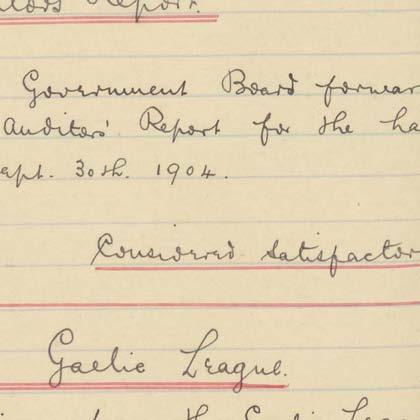 Report.
Government Board forwar
Auditors' Report for the ha
ept. 30th. 1904.
Considered satisfactor
Gaelic League.
the Gaelic Leag